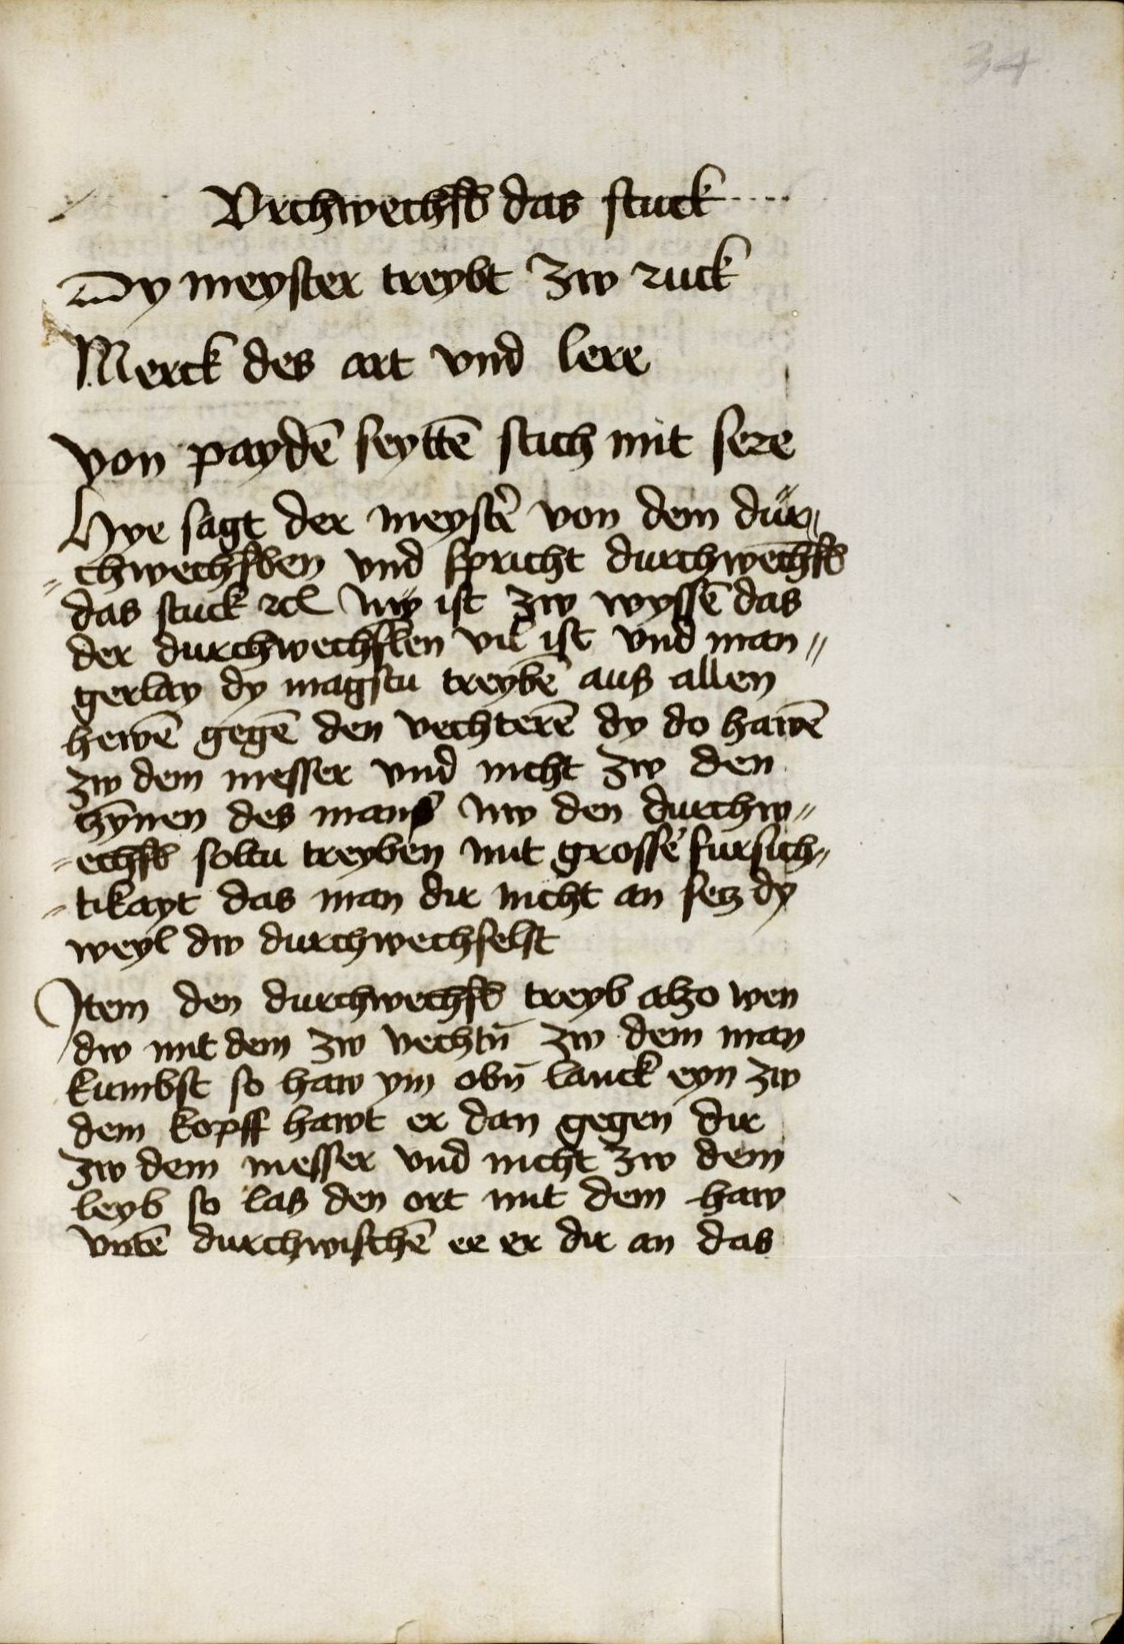 34
Vrchwechsl das stuck
Dy meyster treybt zw ruck
Merck des art vnd lere
von paydē seyttē stich mit sere
Hye sagt der meystē von dem dür
chwechslen vnd spricht durchwechsl
das stuck rcl Nw ist zw wyssē das
der durchwechslen vil ist vnd man
gerlay dy magstu treybē aus allen
hewē gegē den vechterē dy do hawē
zw dem messer vnd nicht zw den
des mans Nw den durchw
echsl soltu treyben mit grosse fursich
tikayt das man dir nicht an setz dy
weyl dw durchwechselst
Item den durchwechsl treyb also wen
dw mit dem zw vechtn̄ zw dem man
kumbst so haw ym obn̄ lanck eyn zw
dem kopff hawt er dan gegen dir
zw dem messer vnd nicht zw dem
leyb so las den ort mit dem haw
vntē durchwischē ee er dir an das